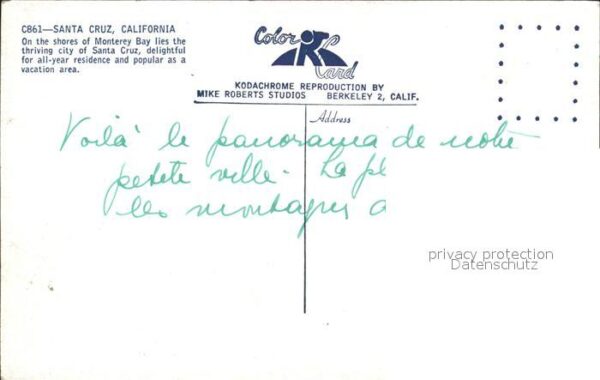 C861—SANTA CRUZ, CALIFORNIA
On the shores of Monterey Bay lies the
thriving city of Santa Cruz, delightful
for all-year residence and popular as a
vacation area.
Color
Card
KODACHROME REPRODUCTION BY
MIKE ROBERTS STUDIOS BERKELEY 2, CALIF.
Address
Voilà le panorama de notre
petite ville. La pl
les montagnes a
privacy protection
Datenschutz